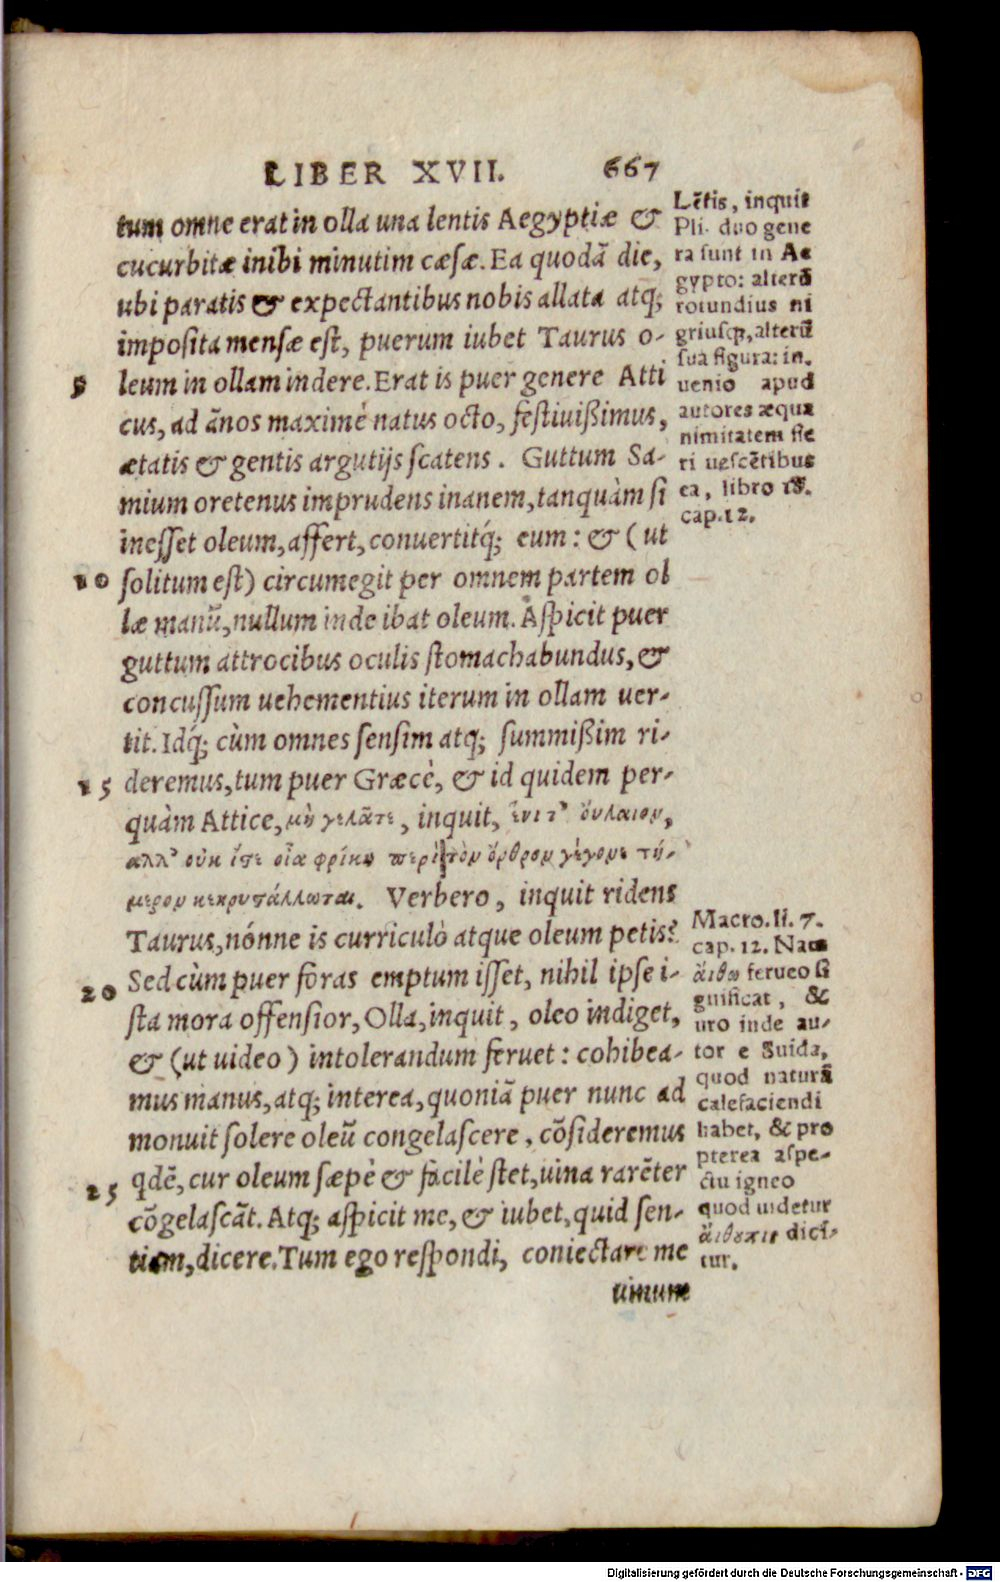 LIBER XVII. 667
tum omne erat in olla una lentis Aegyptiæ &
cucurbitæ inibi minutim cæsæ. Ea quodã die,
ubi paratis & expectantibus nobis allata atq;
imposita mensæ est, puerum iubet Taurus o-
5 leum in ollam indere. Erat is puer genere Atti
cus, ad ãnos maximè natus octo, festiuißimus,
ætatis & gentis argutijs scatens. Guttum Sa-
mium oretenus imprudens inanem, tanquàm si
inesset oleum, affert, conuertitq́; eum: & (ut
10 solitum est) circumegit per omnem partem ol
læ manũ, nullum inde ibat oleum. Aspicit puer
guttum attrocibus oculis stomachabundus, &
concussum uehementius iterum in ollam uer-
tit. Idq́; cùm omnes sensim atq; summißim ri-
15 deremus, tum puer Græcè, & id quidem per-
quàm Attice, μὴ γελᾶτε, inquit, ἔνι τ' οὔλαιον,
ἀλλ' οὐκ ἴστε οἵα φρίκη περὶ τὸν ὄρθρον γέγονε τή-
μερον κεκρυστάλλωται. Verbero, inquit ridens
Taurus, nónne is curriculò atque oleum petis?
20 Sed cùm puer foras emptum isset, nihil ipse i-
sta mora offensior, Olla, inquit, oleo indiget,
& (ut uideo) intolerandum feruet: cohibea-
mus manus, atq; interea, quoniã puer nunc ad
monuit solere oleũ congelascere, cõsideremus
25 qdẽ, cur oleum sæpè & facilè stet, uina rarẽter
cõgelascãt. Atq; aspicit me, & iubet, quid sen-
tiam, dicere. Tum ego respondi, coniectare me
uinum
Lẽtis, inquit
Pli. duo gene
ra sunt in Ae
gypto: alterũ
rotundius ni
griusq́;, alterũ
sua figura: in-
uenio apud
autores æqua
nimitatem fie
ri uescẽtibus
ea, libro 18.
cap. 12.
Macro. li. 7.
cap. 12. Nam
ἄιθω ferueo si
gnificat, &
uro inde au-
tor e Suida,
quod naturã
calefaciendi
habet, & pro
pterea aspe-
ctu igneo
quod uidetur
ἄιθοπις dici-
tur.
Digitalisierung gefördert durch die Deutsche Forschungsgemeinschaft - DFG